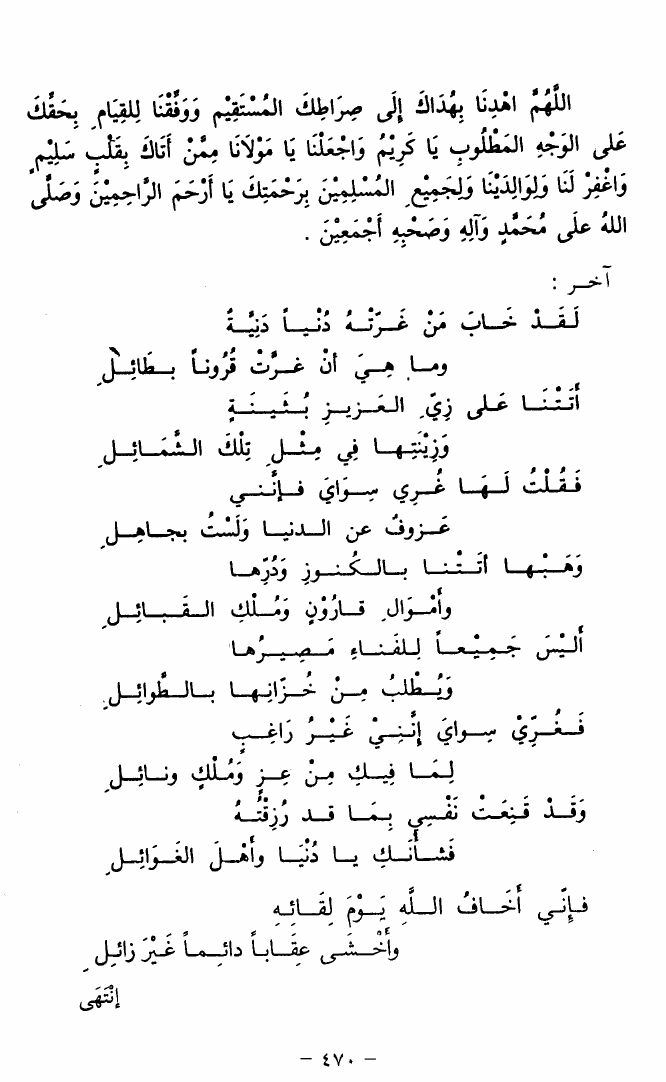 اللَّهُمَّ اهْدِنَا بِهُدَاكَ إِلَى صِرَاطِكَ المُسْتَقِيْمِ وَوَفِّقْنَا لِلقِيَامِ بِحَقِّكَ
عَلى الوَجْهِ المَطْلُوبِ يَا كَرِيْمُ وَاجْعَلْنَا يَا مَوْلَانَا مِمَّنْ أَتَاكَ بِقَلْبٍ سَلِيْمٍ
وَاغْفِرْ لَنَا وَلِوَالِدَيْنَا وَلِجَمِيْعِ المُسْلِمِيْنَ بِرَحْمَتِكَ يَا أَرْحَمَ الرَّاحِمِيْنَ وَصَلَّى
اللهُ على مُحَمَّدٍ وَآلِهِ وَصَحْبِهِ أَجْمَعِيْنَ .
آخر :
لَقَدْ خَابَ مَنْ غَرَّتْهُ دُنْيَاً دَنِيَّةُ
وما هِيَ أنْ غَرَّتْ قُرُوناً بِطَائِلِ
أَتَتْنَا عَلى زِيِّ العَزِيزِ بُثَيْنَةٍ
وَزِيْنَتِها فِي مِثْلِ تِلْكَ الشَّمَائِلِ
فَقُلْتُ لَهَا غُرِي سِوَايَ فإنَّني
عَزوفٌ عن الدنيا وَلَسْتُ بجاهِلِ
وَهَبْها أتَتْنا بالكُنوزِ وَدُرِّها
وأَمْوَالِ قارُوْنٍ وَمُلْكِ القَبائِلِ
أَلَيْسَ جَمِيْعاً لِلفَناءِ مَصِيرُها
وَيُطْلبُ مِنْ خُزّانِها بالطَّوائِلِ
فَغُرِّيْ سِوايَ إنَّنِيْ غَيْرُ رَاغِبٍ
لِمَا فِيكِ مِنْ عِزٍ وَمُلْكٍ ونائِلِ
وَقَدْ قَنِعَتْ نَفْسِي بِمَا قد رُزِقْتُهُ
فَشأنَكِ يا دُنْيَا وأَهْلَ الغَوَائِلِ
فإنّي أَخَافُ اللَّهِ يَوْمَ لِقَائِهِ
وأَخْشَى عِقَاباً دائِماً غَيْرَ زائِلِ
إنْتَهَى
– ٤٧٠ –